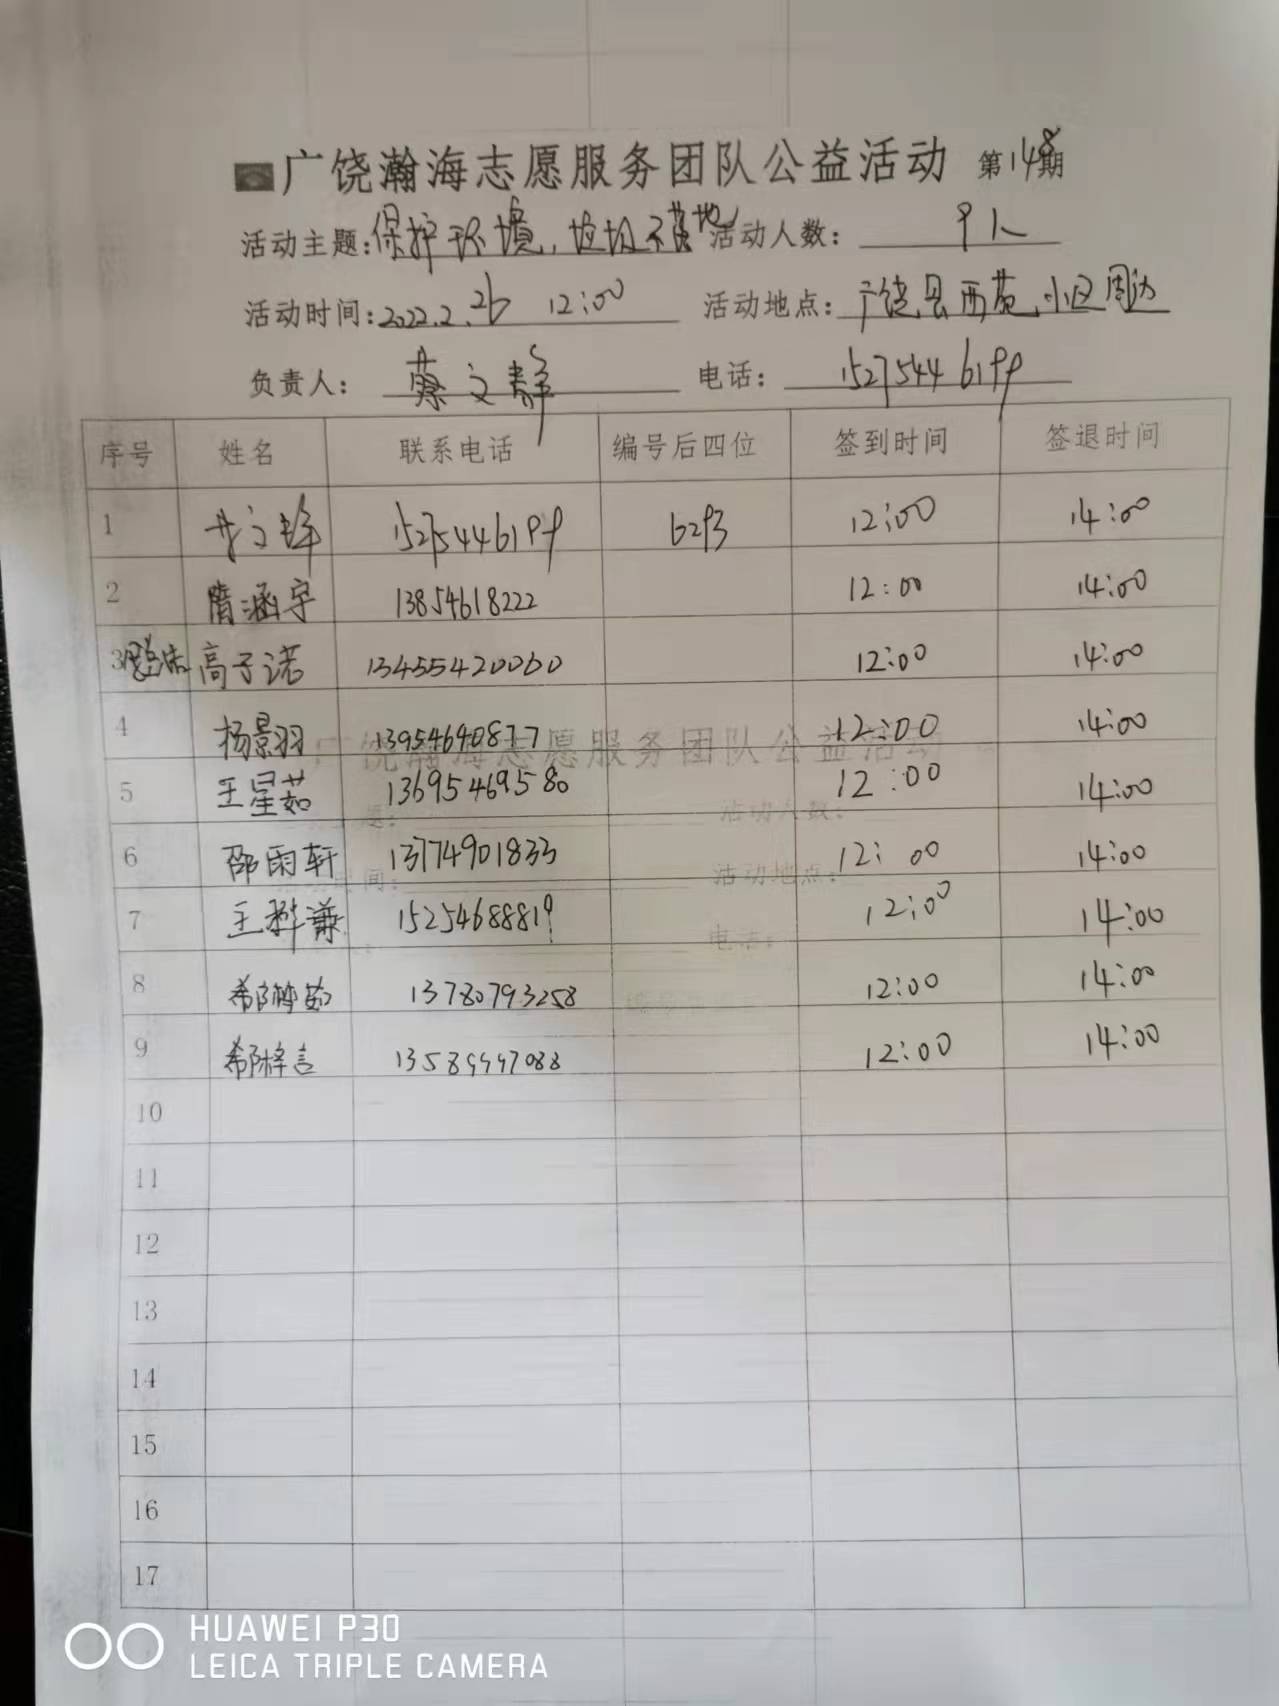 广饶瀚海志愿服务团队公益活动 第148期
活动主题：保护环境，垃圾不落地 活动人数： 9人
活动时间：2022.2.26 12:00 活动地点：广饶县西苑小区周边
负责人： 蔡文静 电话： 15275446199
序号 姓名 联系电话 编号后四位 签到时间 签退时间
1 15275446199 6293 12:00 14:00
2 隋涵宇 13854618222 12:00 14:00
3 高子诺 13455420060 12:00 14:00
4 杨景羽 13954640877 12:00 14:00
5 王星茹 13695469580 12:00 14:00
6 邵雨轩 13774901833 12:00 14:00
7 王 谦 15254688819 12:00 14:00
8 13780793258 12:00 14:00
9 13589997088 12:00 14:00
10
11
12
13
14
15
16
17
广饶瀚海志愿服务团队公益活动
活动人数：
活动地点：
电话：
HUAWEI P30
LEICA TRIPLE CAMERA